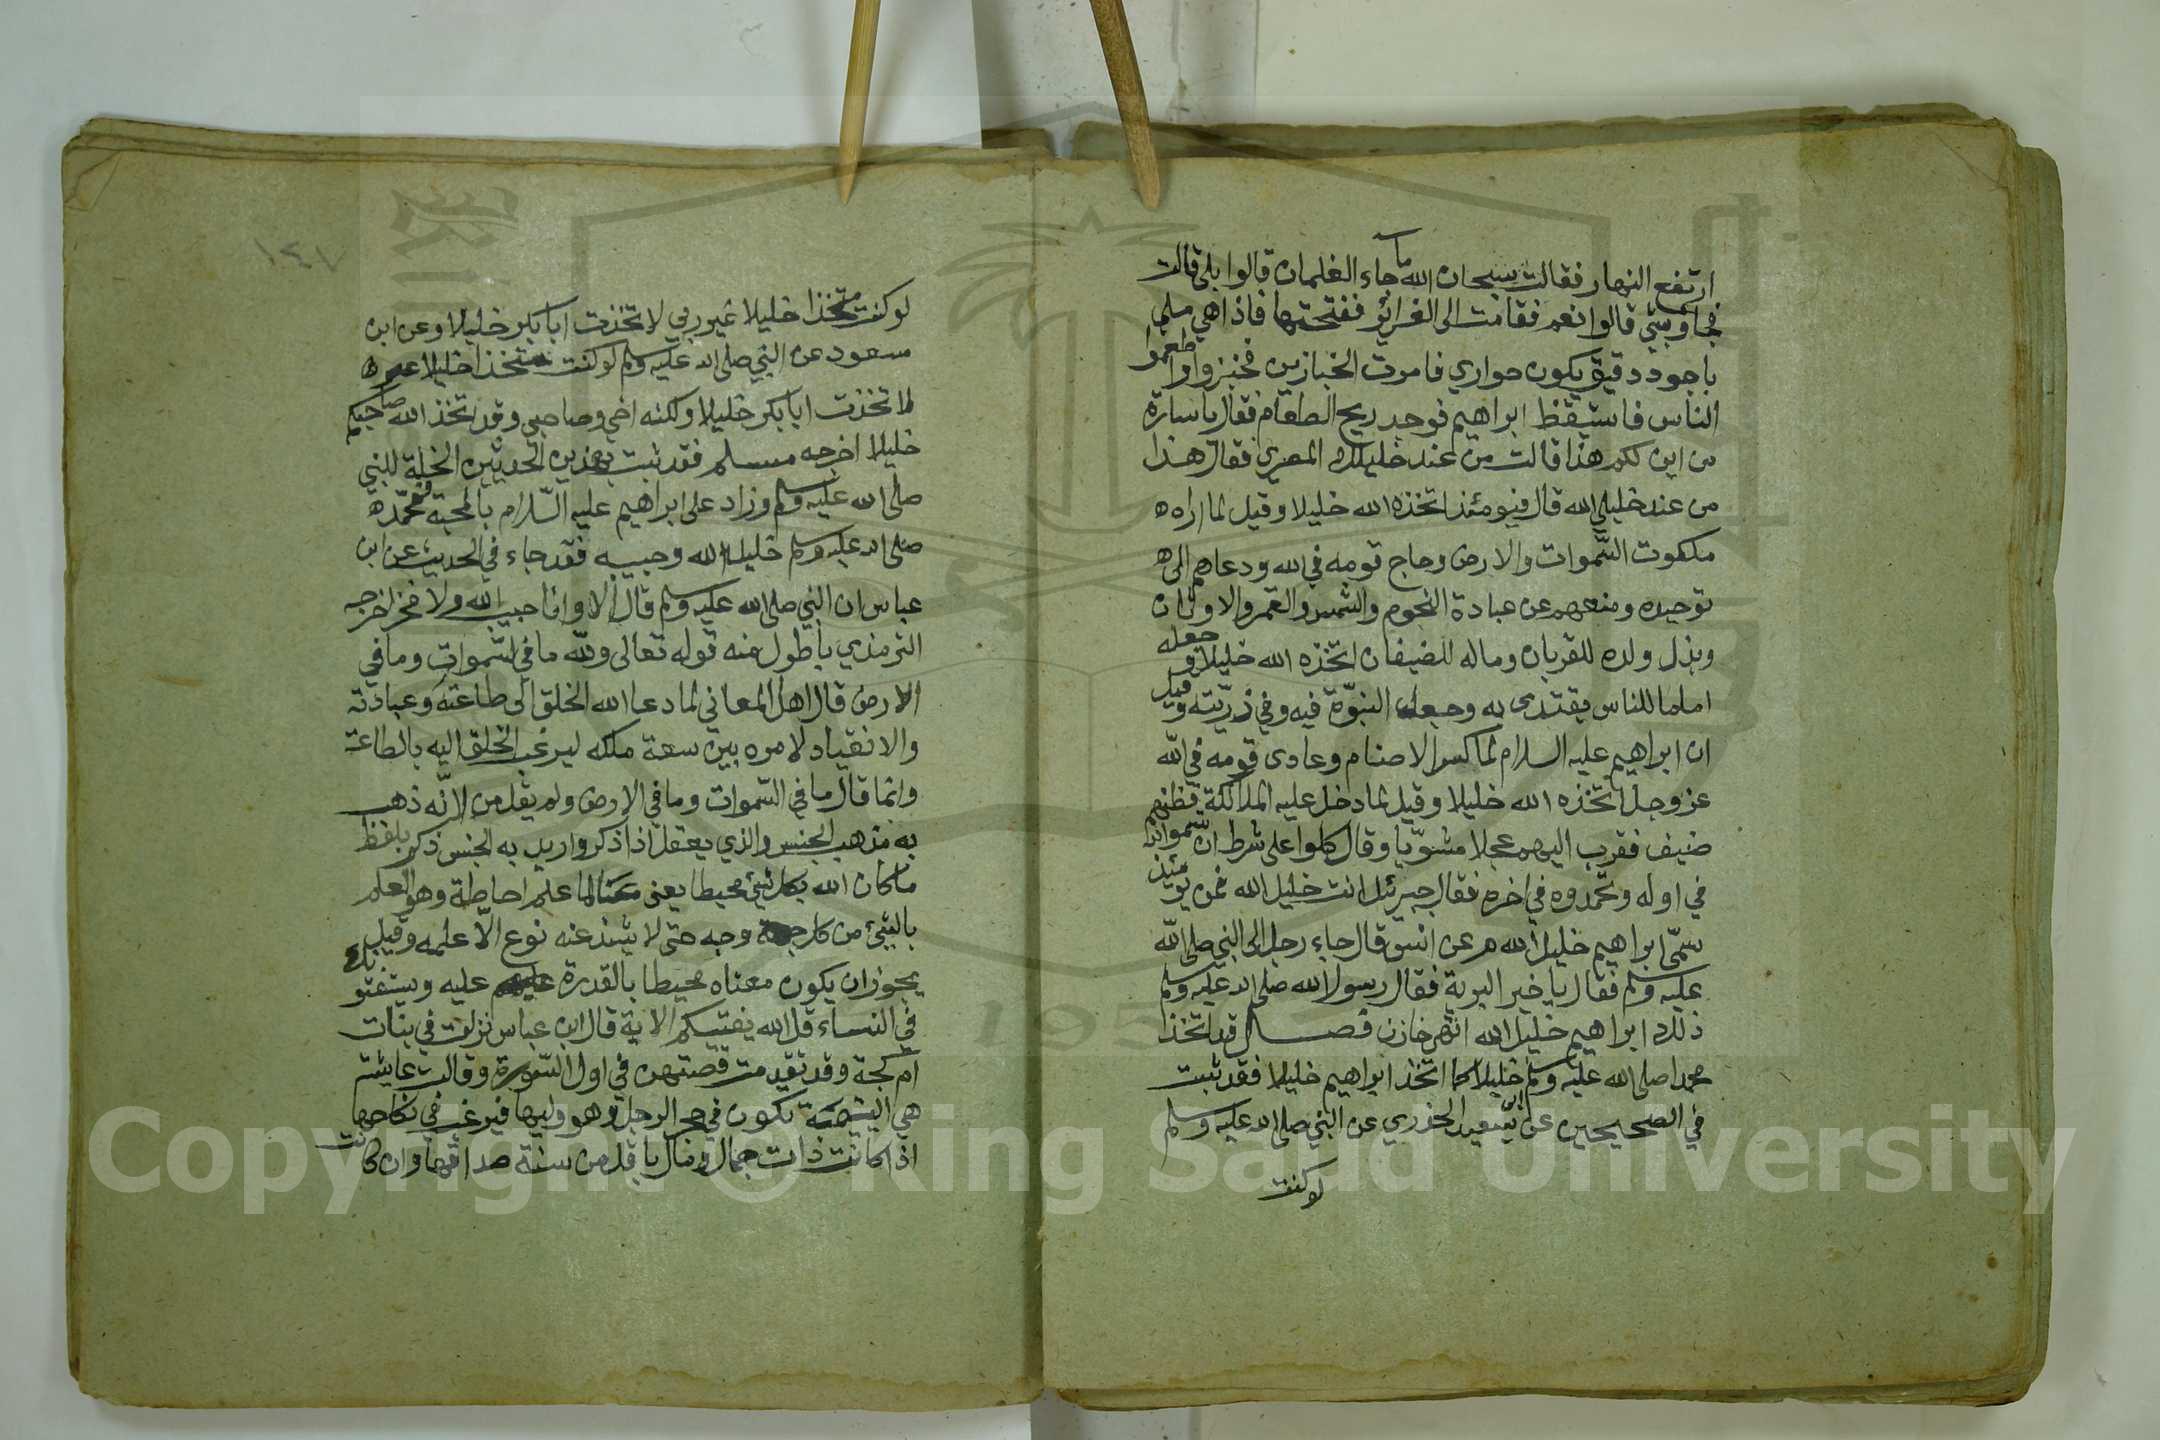 ارتفع النهار فقالت سبحان الله ما جاء الغلمان قالوا بلى قالت
فجاوا بشي قالوا نعم فقامت الى الغرائر ففتحتها فاذا هي ملى
باجود دقيق يكون حواري فامرت الخبازين فخبزوا واطعموا
الناس فاستيقظ ابراهيم فوجد ريح الطعام فقال يا سارة
من اين لكم هذا قالت من عند خليلك المصري فقال هذا
من عند خليلي الله قال فيومئذ اتخذه الله خليلا وقيل لما اراه ه
ملكوت السموات والارض وحاج قومه في الله ودعاهم الى ه
توحيده ومنعهم عن عبادة النجوم والشمس والقمر والاوثان
وبذل ولده للقربان وماله للضيفان اتخذه الله خليلا وجعله
اماما للناس يقتدى به وجعل النبوة فيه وفي ذريته وقيل
ان ابراهيم عليه السلام لما كسر الاصنام وعادى قومه في الله
عز وجل اتخذه الله خليلا وقيل لما دخل عليه الملائكة فظنهم
ضيف فقرب اليهم عجلا مشويا وقال كلوا على شرط ان تسموا الله
في اوله وتحمدوه في اخره فقال جبرئل انت خليل الله فمن يومئذ
سمى ابراهيم خليل الله م عن انس قال جاء رجل الى النبي صلى الله
عليه وسلم فقال يا خير البرية فقال رسول الله صلى الله عليه وسلم
ذلك ابراهيم خليل الله انتهى خازن فصل قد اتخذ
محمدا صلى الله عليه وسلم خليلا كما اتخذ ابراهيم خليلا فقد ثبت
في الصحيحين عن ابي سعيد الخدري عن النبي صلى الله عليه وسلم
لو كنت
١٤٧
لو كنت متخذا خليلا غير ربي لاتخذت ابا بكر خليلا وعن ابن
مسعود عن النبي صلى الله عليه وسلم لو كنت متخذا خليلا غيره
لاتخذت ابا بكر خليلا ولكنه اخي وصاحبي وقد اتخذ الله صاحبكم
خليلا اخرجه مسلم فقد ثبت بهذين الحديثين الخلة للنبي
صلى الله عليه وسلم وزاد على ابراهيم عليه السلام بالمحبة فمحمد ه
صلى الله عليه وسلم خليل الله وحبيبه فقد جاء في الحديث عن ابن
عباس ان النبي صلى الله عليه وسلم قال الا وانا حبيب الله ولا فخر اخرجه
الترمذي باطول منه قوله تعالى ولله ما في السموات وما في
الارض قال اهل المعاني لما دعا الله الخلق الى طاعته وعبادته
والانقياد لامره بين سعة ملكه ليرغب الخلق اليه بالطاعة
وانما قال ما في السموات وما في الارض ولم يقل من لانه ذهب
به مذهب الجنس والذي يعقل اذا ذكر واريد به الجنس ذكر بلفظ
ما وكان الله بكل شئ محيطا يعني عالما علم احاطة وهو العلم
بالشئ من كل وجه حتى لا يشذ عنه نوع الا علمه وقيل
يجوز ان يكون معناه محيطا بالقدرة عليه ويستفتونك
في النساء قل الله يفتيكم الاية قال ابن عباس نزلت في بنات
ام كجة وقد تقدمت قصتهن في اول السورة وقالت عايشة
هي اليتيمة تكون في حجر الرجل وهو وليها فيرغب في نكاحها
اذا كانت ذات جمال ومال باقل من سنة صداقها وان كانت
Copyright © King Saud University